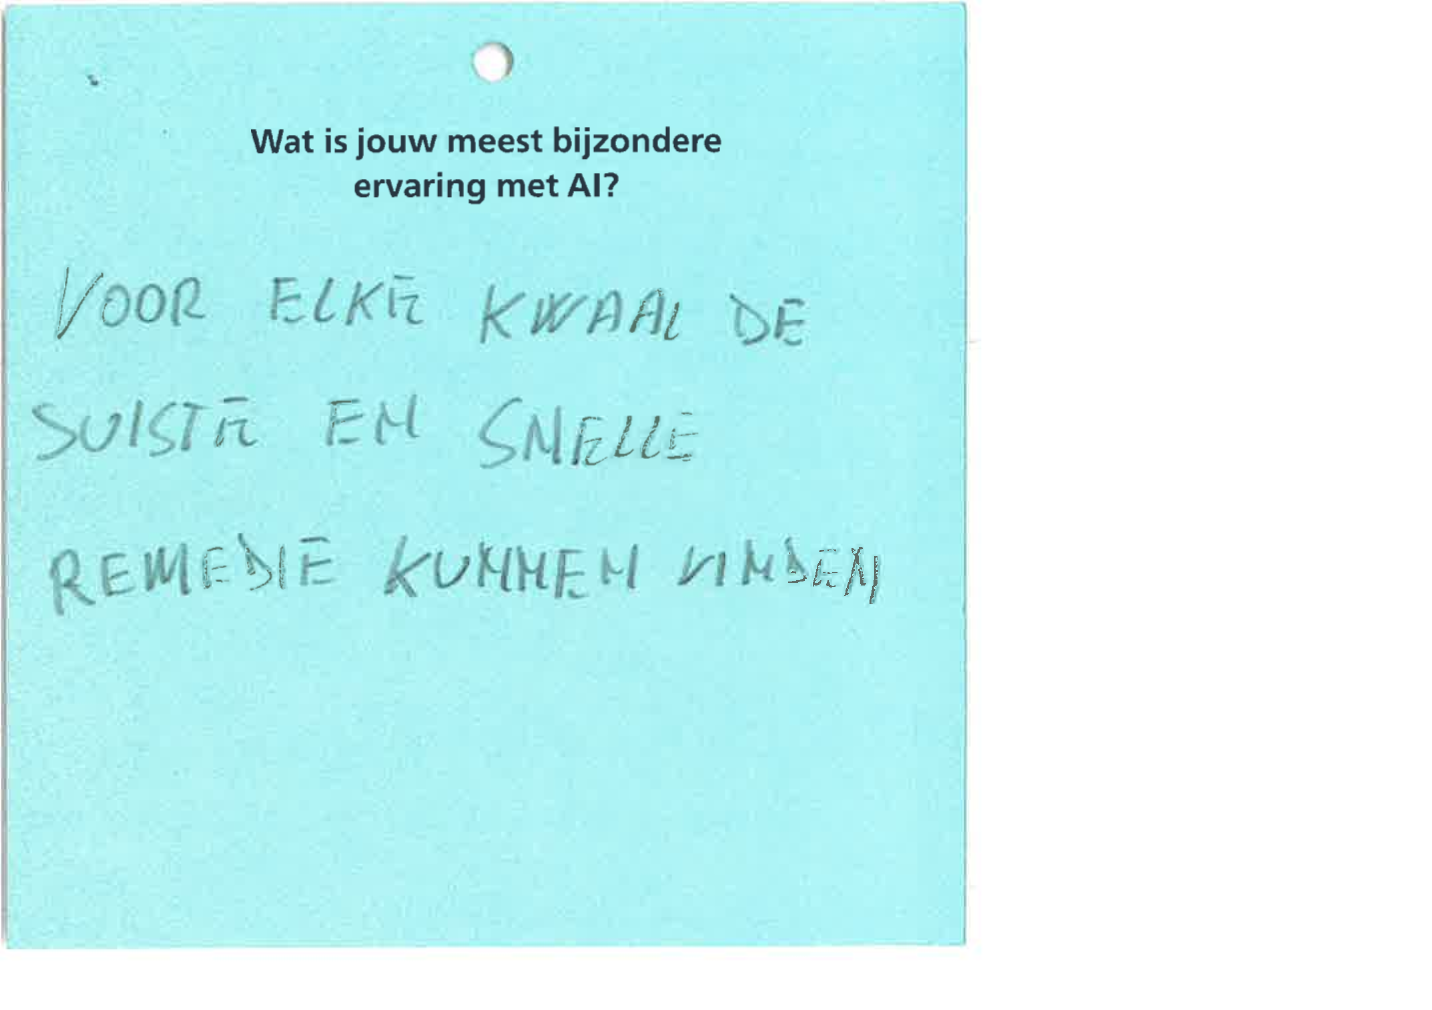 Wat is jouw meest bijzondere
ervaring met AI?
VOOR ELKE KWAAL DE
SUISTE EN SNELLE
REMEDIE KUNNEN VINDEN